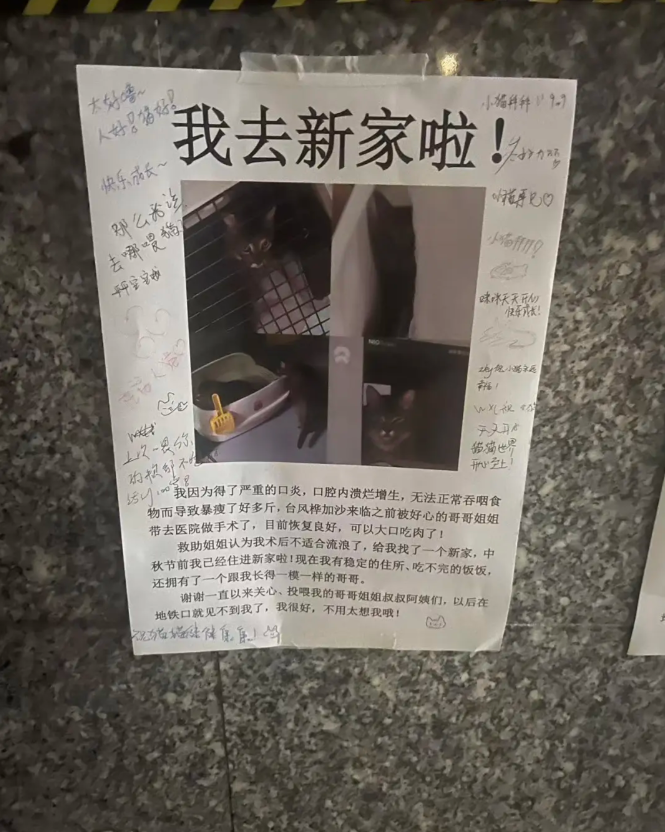 我去新家啦！
太好噜~
人好！猫好！
快乐成长~
那么我该
去哪喂猫
上次一喂你
小猫拜拜
小猫再见♡
咪咪天天开心
快乐成长！
天天开心
猫猫世界
我因为得了严重的口炎，口腔内溃烂增生，无法正常吞咽食
物而导致暴瘦了好多斤，台风桦加沙来临之前被好心的哥哥姐姐
带去医院做手术了，目前恢复良好，可以大口吃肉了！
救助姐姐认为我术后不适合流浪了，给我找了一个新家，中
秋节前我已经住进新家啦！现在我有稳定的住所、吃不完的饭饭，
还拥有了一个跟我长得一模一样的哥哥。
谢谢一直以来关心、投喂我的哥哥姐姐叔叔阿姨们，以后在
地铁口就见不到我了，我很好，不用太想我哦！